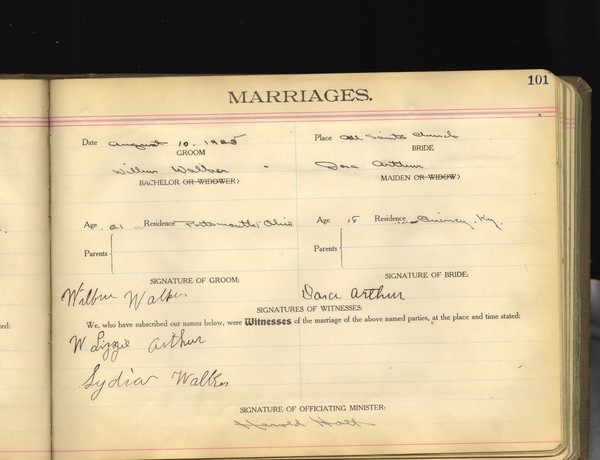 101
MARRIAGES.
Date August 10, 1925 Place All Saints Church
GROOM BRIDE
Wilbur Walker Dora Arthur
BACHELOR OR WIDOWER? MAIDEN OR WIDOW?
Age 21 Residence Portsmouth, Ohio Age 18 Residence Quincy, Ky.
Parents Parents
SIGNATURE OF GROOM: SIGNATURE OF BRIDE:
Wilbur Walker Dora Arthur
SIGNATURES OF WITNESSES:
ed: We, who have subscribed our names below, were Witnesses of the marriage of the above named parties, at the place and time stated:
W Lizzie Arthur
Lydia Walker
SIGNATURE OF OFFICIATING MINISTER:
Harold Holt